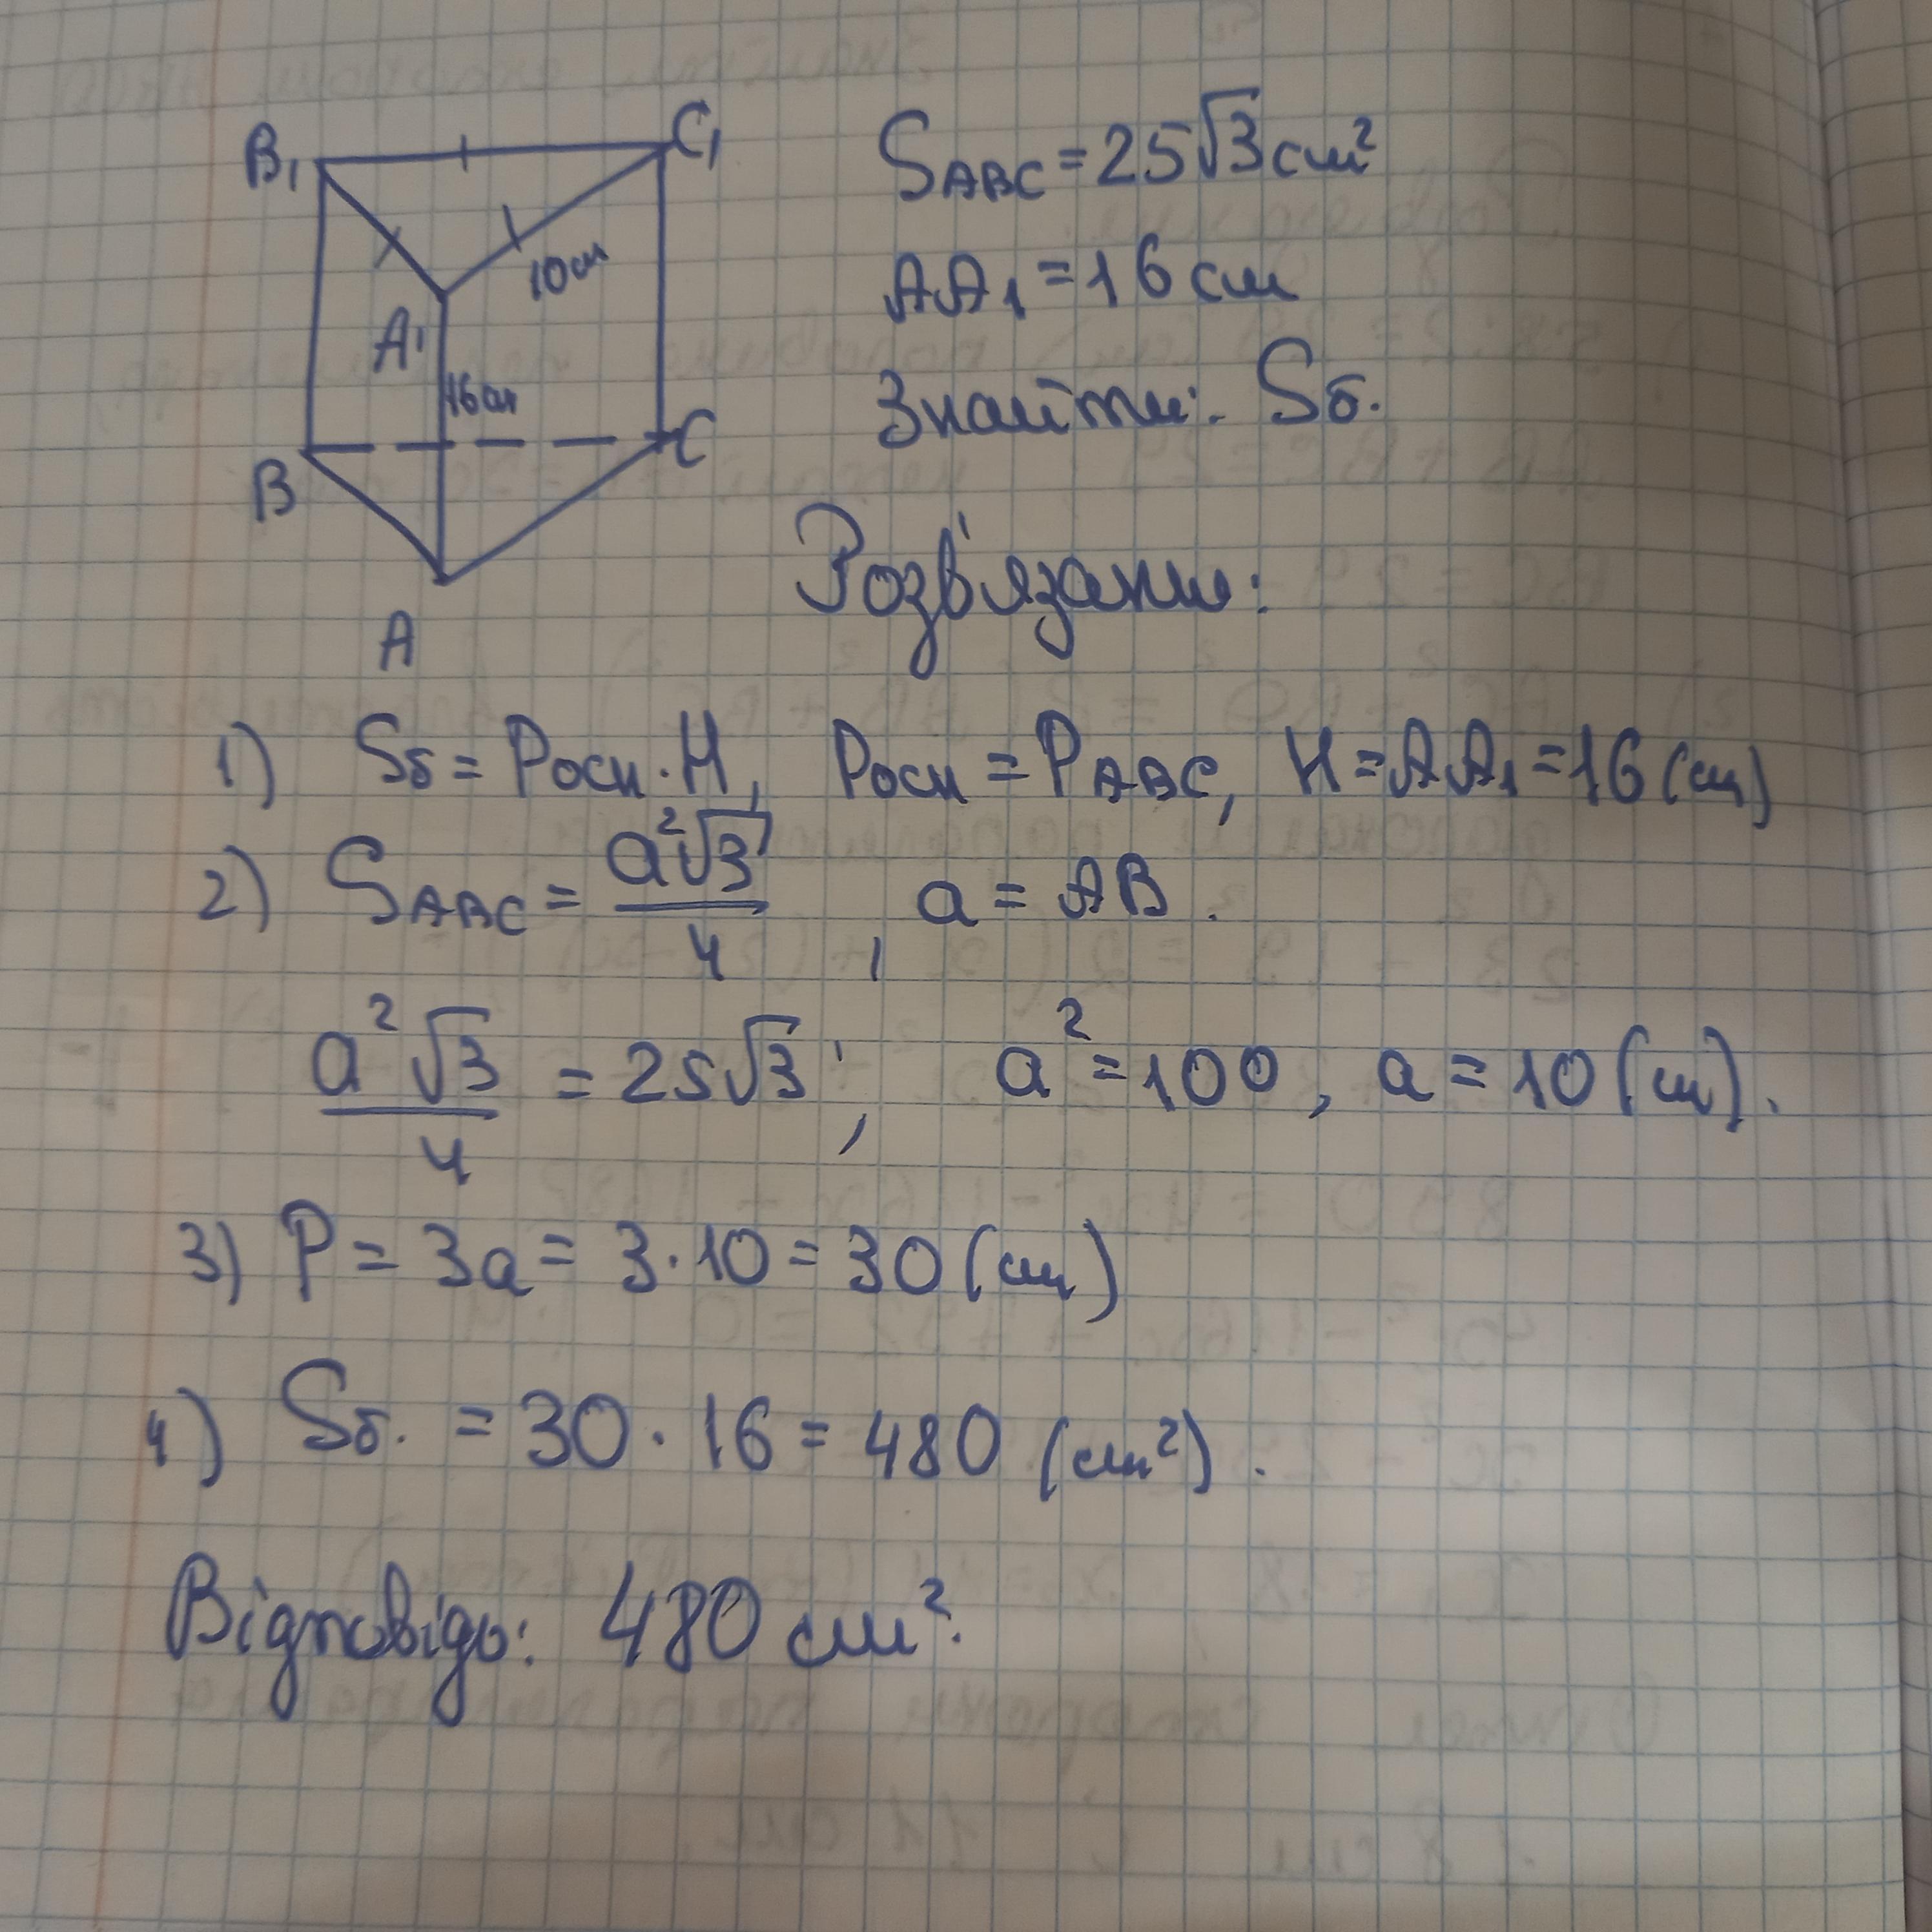 B₁ C₁
10 см
A₁
16 см
B C
A
S_ABC = 25√3 см²
AA₁ = 16 см
Знайти: Sб.
Розв'язання:
1) Sб = Pосн · H, Pосн = P_ABC, H = AA₁ = 16 (см)
2) S_ABC = a²√3/4, a = AB.
a²√3/4 = 25√3; a² = 100, a = 10 (см).
3) P = 3a = 3 · 10 = 30 (см)
4) Sб. = 30 · 16 = 480 (см²).
Відповідь: 480 см².